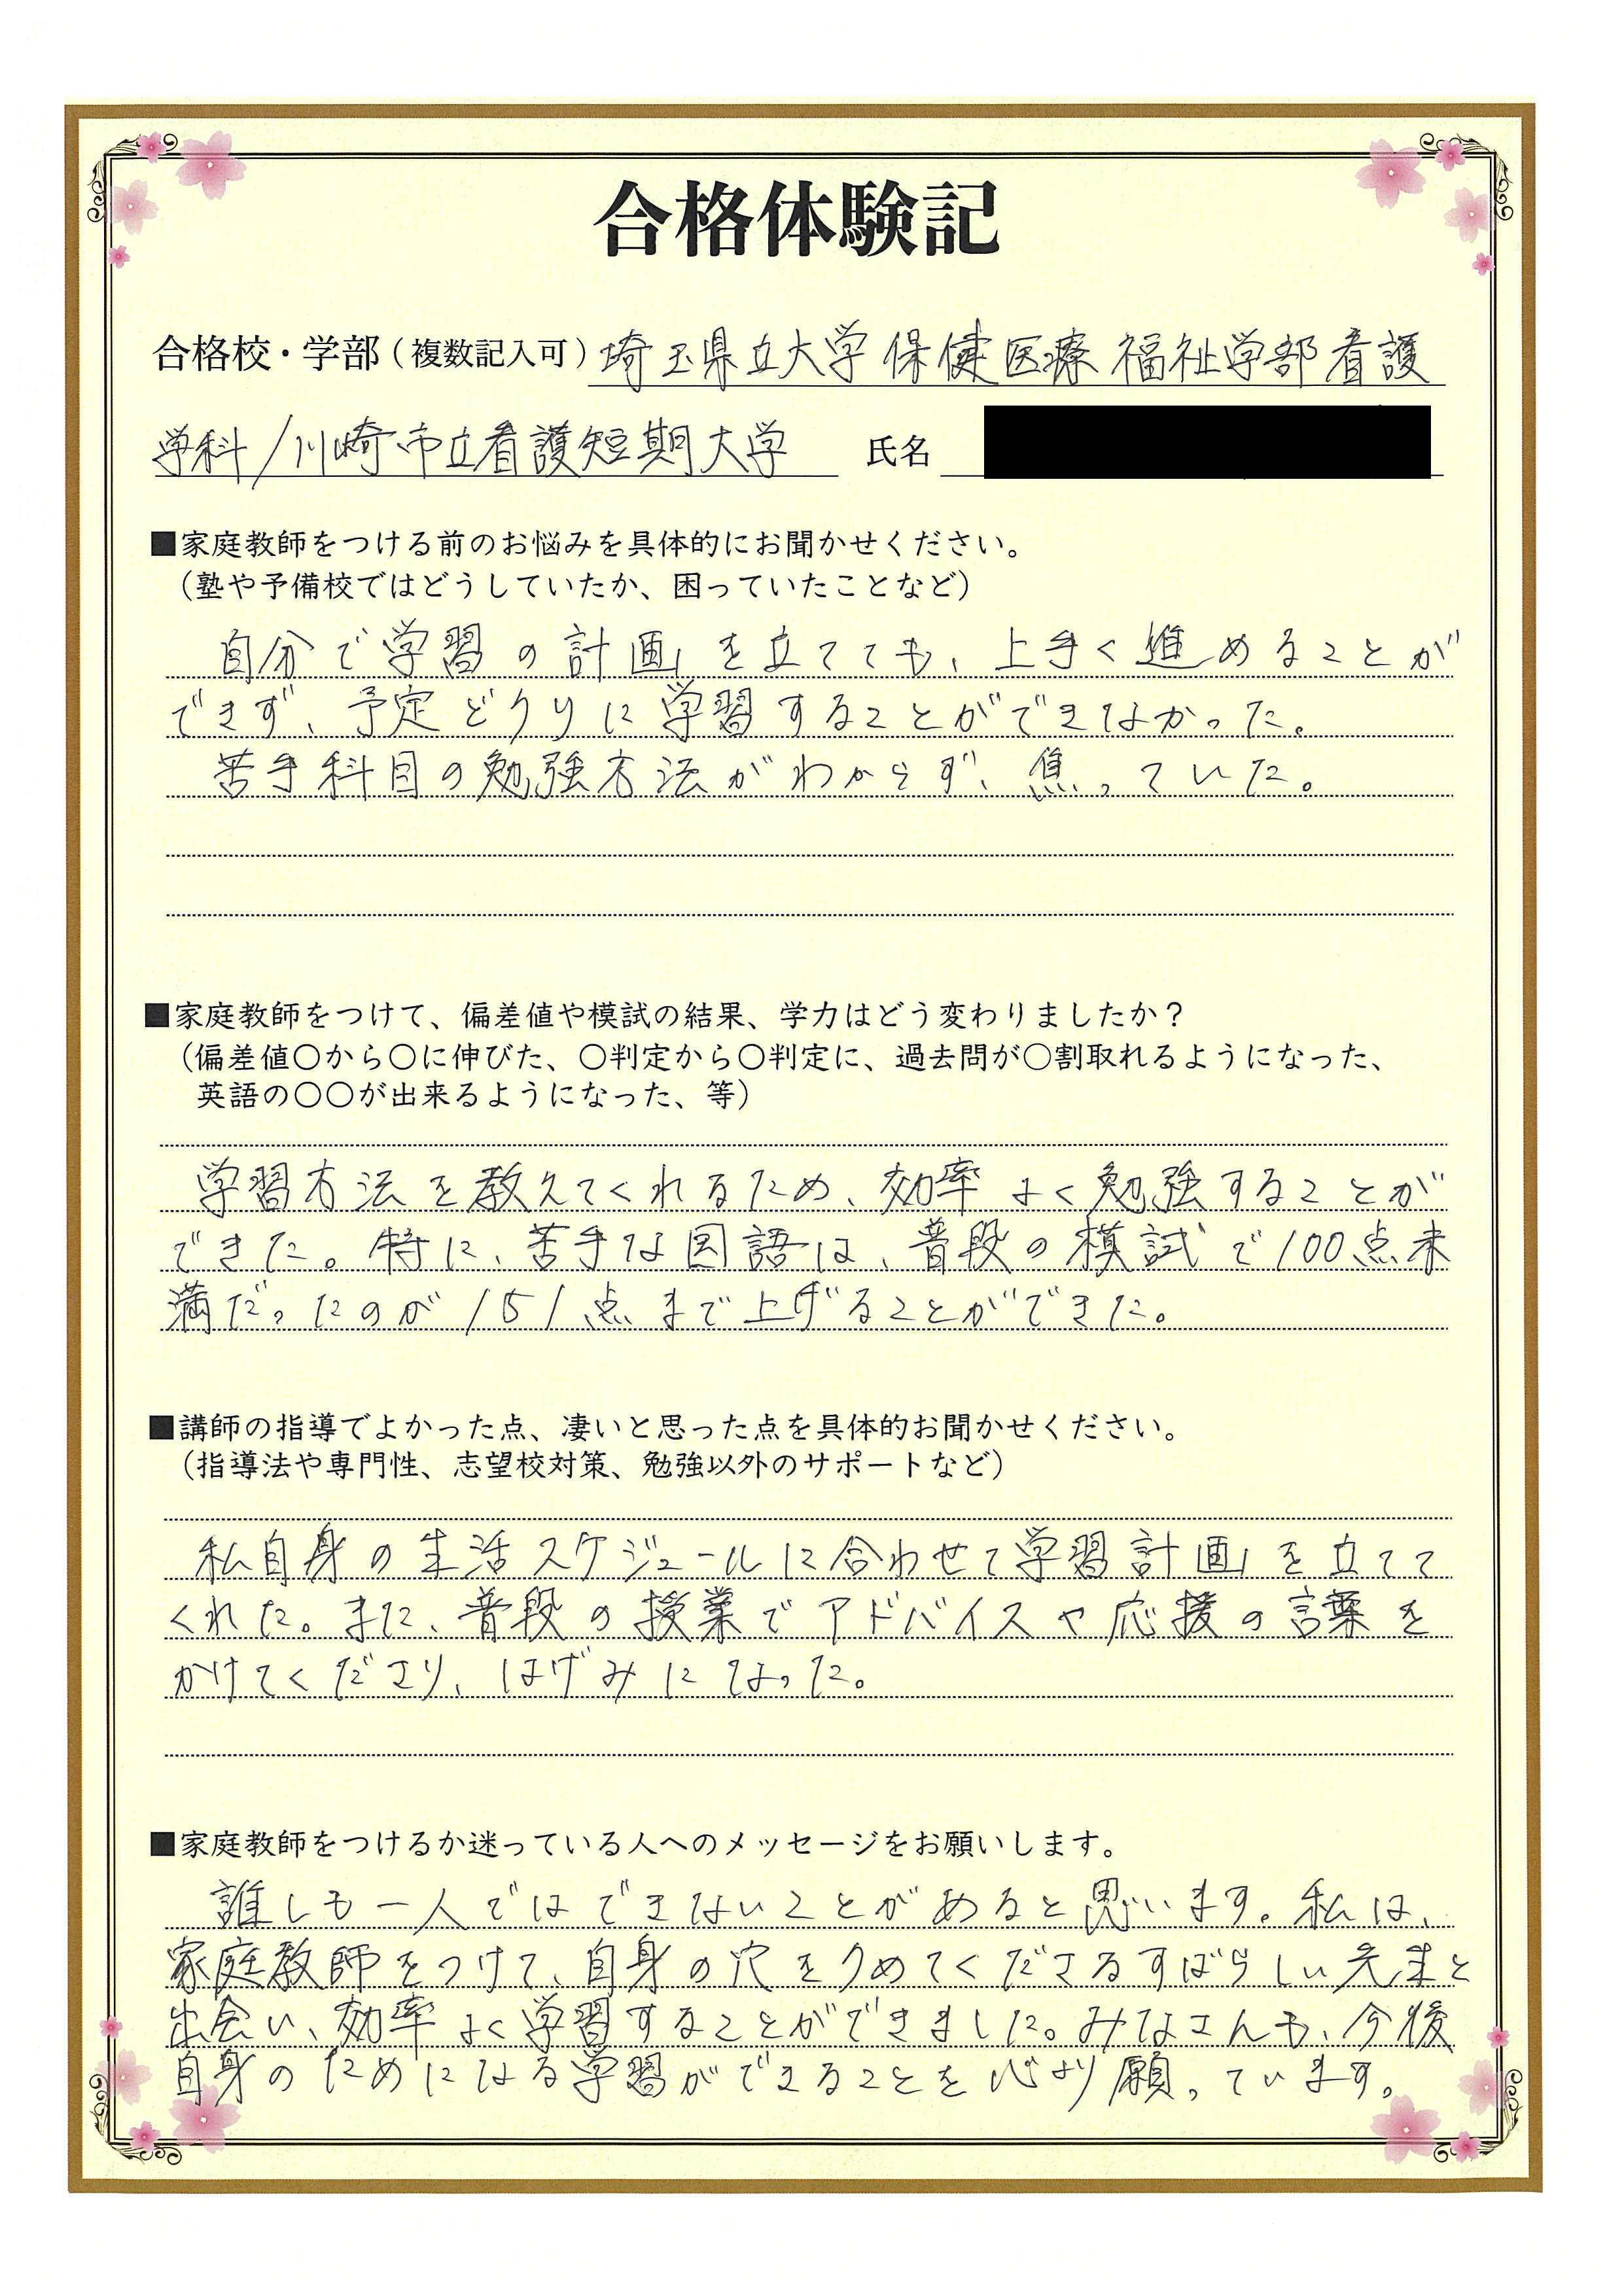 合格体験記
合格校・学部（複数記入可）埼玉県立大学 保健医療福祉学部看護
学科/川崎市立看護短期大学 氏名
■家庭教師をつける前のお悩みを具体的にお聞かせください。
（塾や予備校ではどうしていたか、困っていたことなど）
自分で学習の計画を立てても、上手く進めることが
できず、予定どうりに学習することができなかった。
苦手科目の勉強方法がわからず、焦っていた。
■家庭教師をつけて、偏差値や模試の結果、学力はどう変わりましたか？
（偏差値〇から〇に伸びた、〇判定から〇判定に、過去問が〇割取れるようになった、
英語の〇〇が出来るようになった、等）
学習方法を教えてくれるため、効率よく勉強することが
できた。特に、苦手な国語は、普段の模試で100点未
満だったのが151点まで上げることができた。
■講師の指導でよかった点、凄いと思った点を具体的お聞かせください。
（指導法や専門性、志望校対策、勉強以外のサポートなど）
私自身の生活スケジュールに合わせて学習計画を立てて
くれた。また、普段の授業でアドバイスや応援の言葉を
かけてくださり、はげみになった。
■家庭教師をつけるか迷っている人へのメッセージをお願いします。
誰しも一人ではできないことがあると思います。私は、
家庭教師をつけて、自身の穴をうめてくださるすばらしい先生と
出会い、効率よく学習することができました。みなさんも、今後
自身のためになる学習ができることを心より願っています。